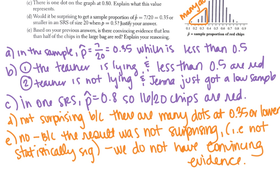 (c) There is one dot on the graph at 0.80. Explain what this value
represents.
(d) Would it be surprising to get a sample proportion of p̂ = 7/20 = 0.35 or
smaller in an SRS of size 20 when p = 0.5? Justify your answer.
(e) Based on your previous answers, is there convincing evidence that less
than half of the chips in the large bag are red? Explain your reasoning.
p̂ = sample proportion of red chips
a) in the sample, p̂ = 7/20 = 0.35 which is less than 0.5
b) ① the teacher is lying & less than 0.5 are red
② teacher is not lying & Jenna just got a low sample
c) in one SRS, p̂ = 0.8 so 16/20 chips are red.
d) not surprising b/c there are many dots at 0.35 or lower
e) no - b/c the result was not surprising, (i.e. not
statistically sig) - we do not have convincing
evidence.